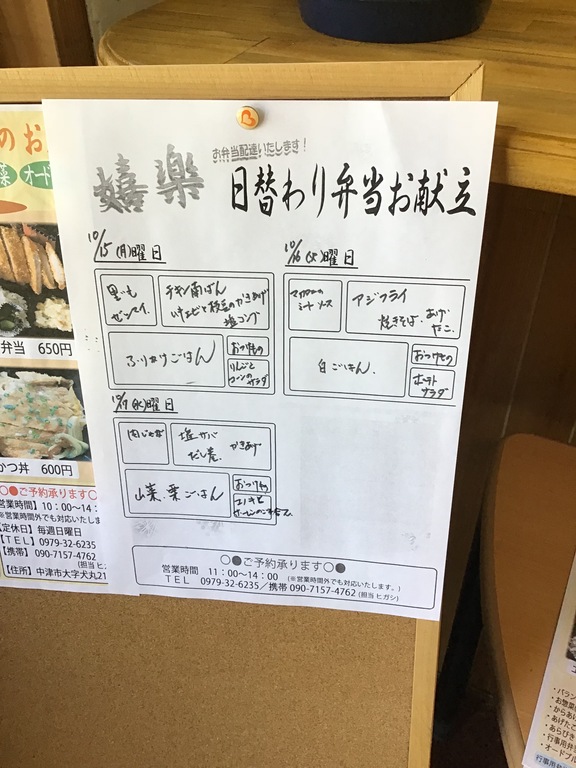 のお
菜 オード
弁当 650円
かつ丼 600円
○●ご予約承ります○
営業時間】10:00〜14:
※営業時間外でも対応いたしま
【定休日】毎週日曜日
【TEL】0979-32-6235
【携帯】090-7157-4762
(担当 ヒガシ)
【住所】中津市大字犬丸21
お弁当配達いたします!
嬉楽 日替わり弁当お献立
10/15(月)曜日
チキン南ばん
塩コンブ
ふりかけごはん
おつけもの
りんごと
コーンのサラダ
10/16(火)曜日
アジフライ
焼きそば、あげ
たこ。
白ごはん。
おつけもの
ポテト
サラダ
10/17(水)曜日
肉じゃが
塩サバ
だし巻、
かきあげ
山菜、栗ごはん
おつけもの
○●ご予約承ります○●
営業時間 11:00〜14:00 (※営業時間外でも対応いたします。)
TEL 0979-32-6235/携帯 090-7157-4762 (担当 ヒガシ)
・バラン
・お惣菜の
・からあげ
・あげたこ
・あらびき
・行事用弁
・オードブル
行事用弁